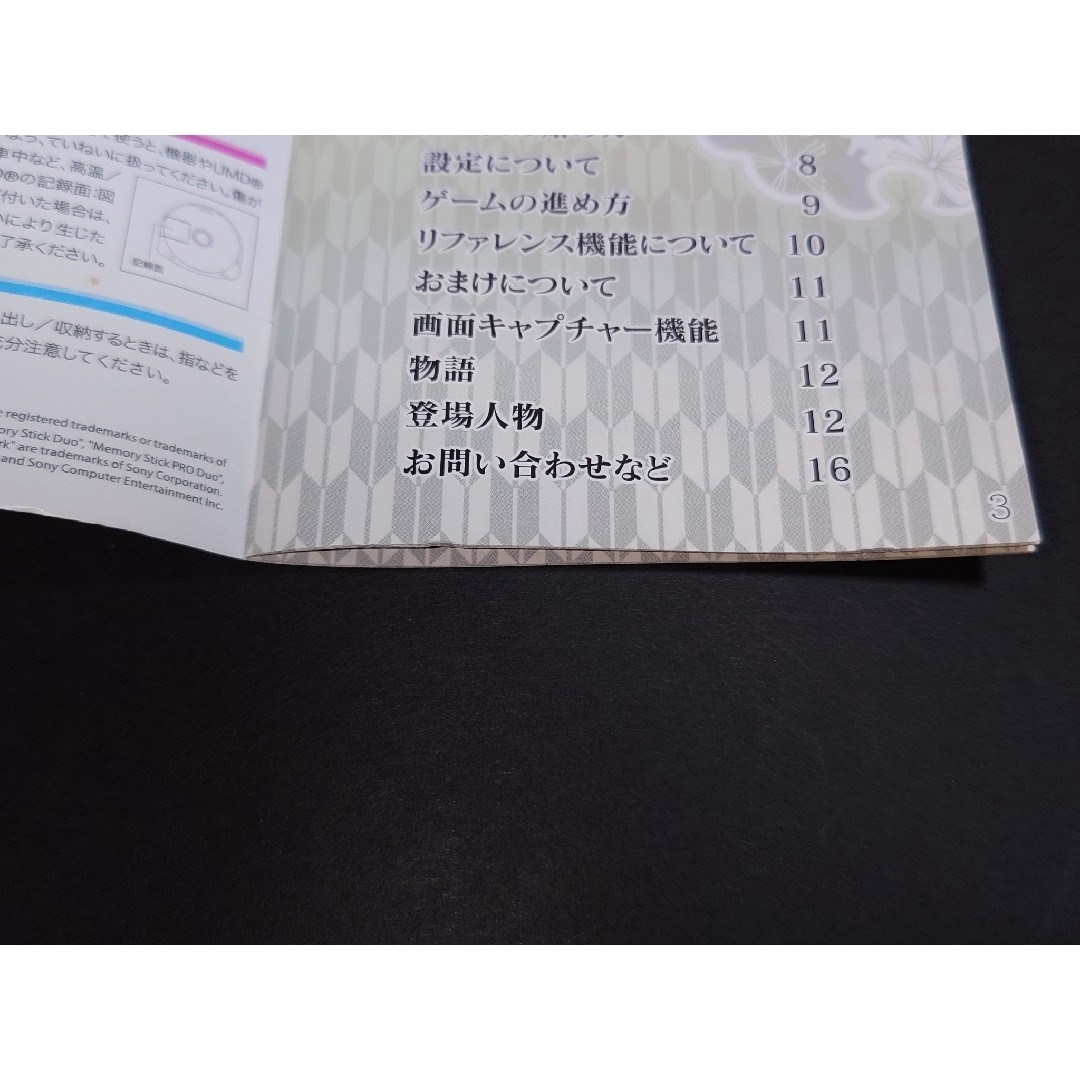 使うと、機器やUMD®
よう、ていねいに扱ってください。傷が
車中など、高温／
D®の記録面:図
付いた場合は、
いにより生じた
了承ください。
記録面
出し／収納するときは、指などを
分注意してください。
registered trademarks or trademarks of
ory Stick Duo", "Memory Stick PRO Duo",
rk" are trademarks of Sony Corporation.
and Sony Computer Entertainment Inc.
設定について 8
ゲームの進め方 9
リファレンス機能について 10
おまけについて 11
画面キャプチャー機能 11
物語 12
登場人物 12
お問い合わせなど 16
3